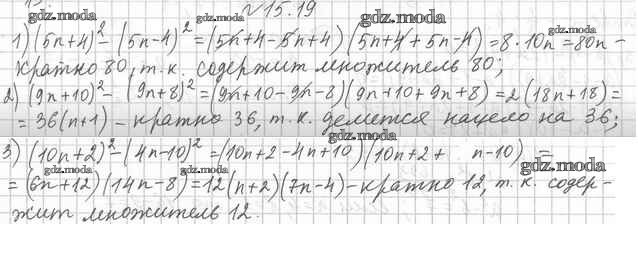 № 15.19
gdz.moda gdz.moda gdz.moda
gdz.moda
1) (5n+4)² - (5n-4)² = (5n+4-5n+4)(5n+4+5n-4) = 8·10n = 80n -
кратно 80, т.к. содержит множитель 80;
2) (9n+10)² - (9n+8)² = (9n+10-9n-8)(9n+10+9n+8) = 2(18n+18) =
= 36(n+1) - кратно 36, т.к. делится нацело на 36;
gdz.moda
3) (10n+2)² - (4n-10)² = (10n+2-4n+10)(10n+2+ n-10) =
gdz.moda gdz.moda gdz.moda
= (6n+12)(14n-8) = 12(n+2)(7n-4) - кратно 12, т.к. содер-
жит множитель 12.